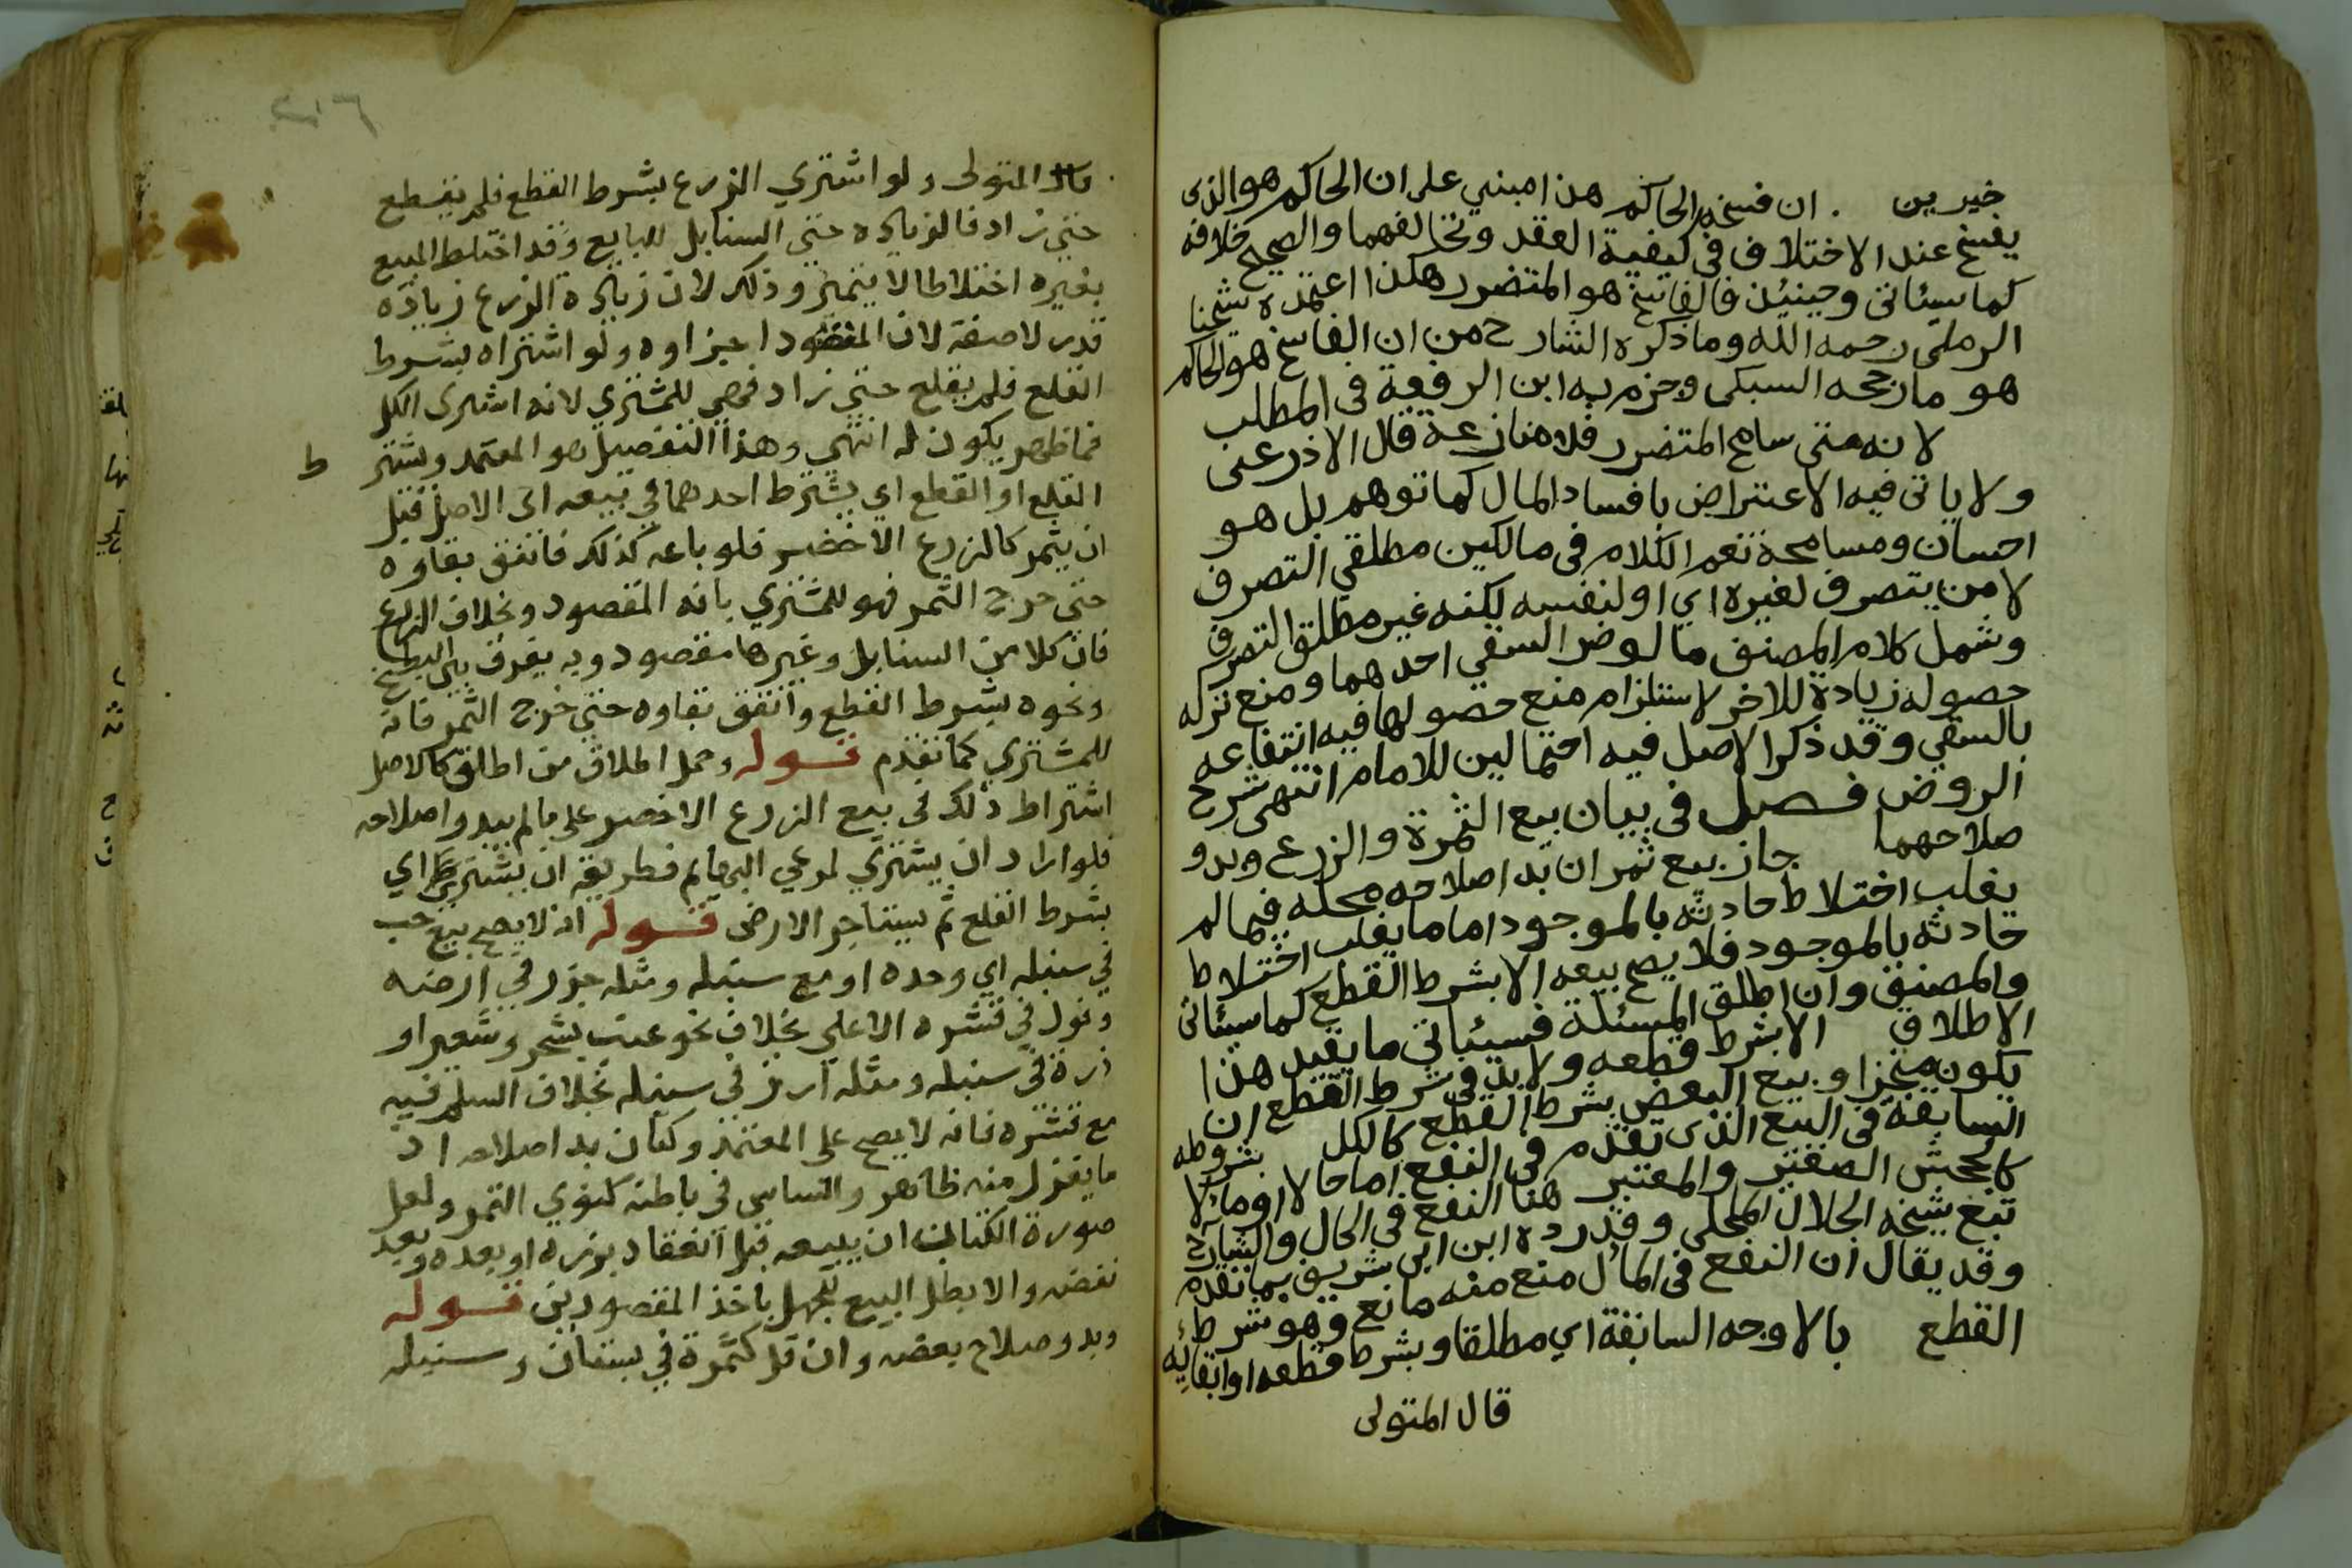 خيرين . ان فسخه الحاكم هذا مبني على ان الحاكم هو الذى
يفسخ عند الاختلاف فى كيفية العقد وتخالفهما والصحيح خلافه
كما سيئاتى وحينئذ فالفاسخ هو المتضرر هكذا اعتمده شيخنا
الرملى رحمه الله وما ذكره الشارح من ان الفاسخ هو الحاكم
هو ما رجحه السبكى وجزم به ابن الرفعة فى المطلب
لانه متى سامح المتضرر فلا منازعة قال الاذرعى
ولا ياتى فيه الاعتراض بافساد المال كما توهم بل هو
احسان ومسامحة نعم الكلام فى مالكين مطلقي التصرف
لا من يتصرف لغيره اي او لنفسه لكنه غير مطلق التصرف
وشمل كلام المصنف ما لو ضر السقي احدهما ومنع تركه
حصوله زيادة للاخر لاستلزام منع حصولها فيه انتفاعه
بالسقي وقد ذكر الاصل فيه احتمالين للامام انتهى شرح
الروض فصل فى بيان بيع الثمرة والزرع وبدو
صلاحهما جاز بيع ثمر ان بدا صلاحه محله فيما لم
يغلب اختلاط حادثه بالموجود اما ما يغلب اختلاط
حادثه بالموجود فلا يصح بيعه الا بشرط القطع كما سيئاتى
والمصنف وان اطلق المسئلة فسيئاتي ما يقيد هذا
الاطلاق الا بشرط قطعه ولا بد فى شرط القطع ان
يكون منجزا وبيع البعض بشرط القطع كالكل بشروطه
السابقة فى البيع الذى تقدم فى النفع اما حالا او مالا
كالجحش الصغير والمعتبر هنا النفع فى الحال والشارح
تبع شيخه الجلال المحلى وقد رده ابن ابى شريف بما تقدم
وقد يقال ان النفع فى المأل منع منه مانع وهو شرط
القطع بالاوجه السابقة اي مطلقا وبشرط قطعه او ابقائه
قال المتولى
٢١٦
قال المتولى ولو اشتري الزرع بشرط القطع فلم يقطع
حتى زاد فالزيادة حتى السنابل للبايع وقد اختلط المبيع
بغيره اختلاطا لا يتميز وذلك لان زيادة الزرع زيادة
قدر لا صفة لان المقصود اجزاوه ولو اشتراه بشرط
القلع فلم يقلع حتى زاد فهي للمشتري لانه اشترى الكل
فما ظهر يكون له انتهى وهذا التفصيل هو المعتمد ويشتر
ط
القلع او القطع اي يشترط احدهما في بيعه اى الاصل قبل
ان يثمر كالزرع الاخضر فلو باعه كذلك فاتفق بقاوه
حتى خرج الثمر فهو للمشتري بانه المقصود وبخلاف الزرع
فان كلا من السنابل وغيرها مقصود وبه يفرق بين البطيخ
ونحوه بشرط القطع واتفق بقاوه حتى خرج الثمر فانه
للمشتري كما تقدم قوله وحمل اطلاق من اطلق كالاصل
اشتراط ذلك في بيع الزرع الاخضر على ما لم يبد واصلاحه
فلو اراد ان يشتري لرعي البهائم فطريقه ان يشتري اي
بشرط القلع ثم يستاجر الارض قوله انه لا يصح بيع حب
في سنبله اي وحده او مع سنبله ومثله جزر في ارضه
وفول في قشره الاعلى بخلاف نحو عنب بشجر وشعير او
ذرة في سنبله ومثله ارز في سنبله بخلاف السلم فيه
مع قشره فانه لا يصح على المعتمد وكتان بدا صلاحه اذ
ما يغزل منه ظاهر والساس في باطنه كنوي التمر ولعل
صورة الكتان ان يبيعه قبل انعقاد بزره او بعده وبعد
نفضه والا بطل البيع للجهل باخذ المقصودين قوله
وبدو صلاح بعضه وان قل كثمرة في بستان وسنبله